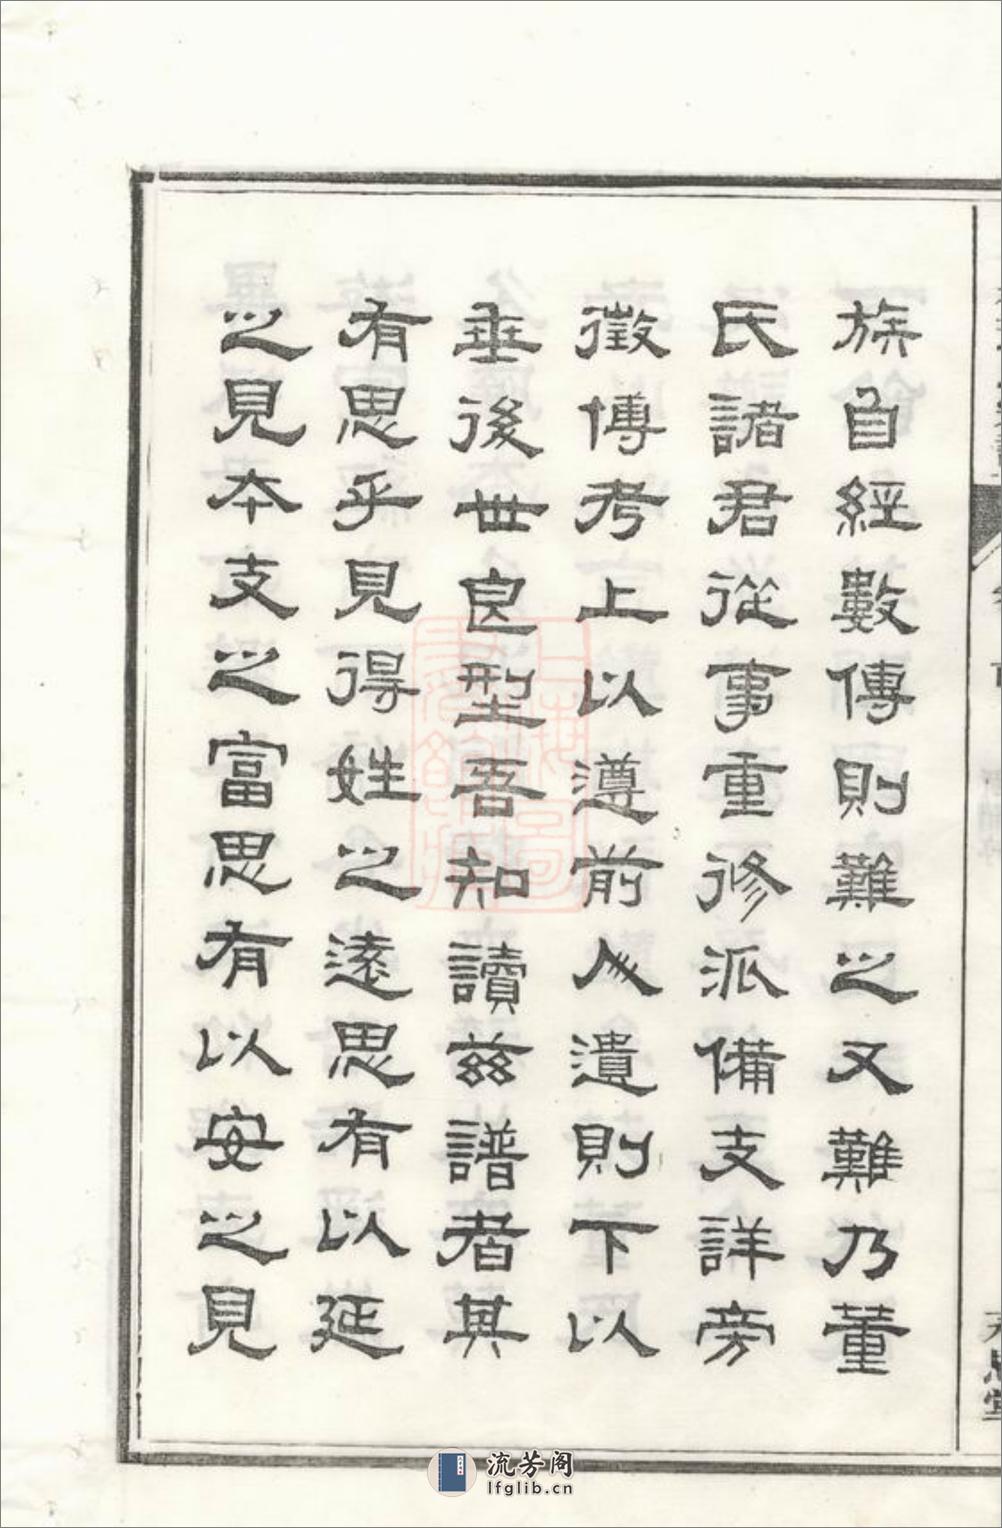 族自經數傳則難之又難乃董
氏諸君從事重修派備支詳旁
徵博考上以遵前人遺則下以
垂後世良型吾知讀茲譜者其
有思乎見得姓之遠思有以延
之見本支之富思有以安之見
流芳阁
lfglib.cn